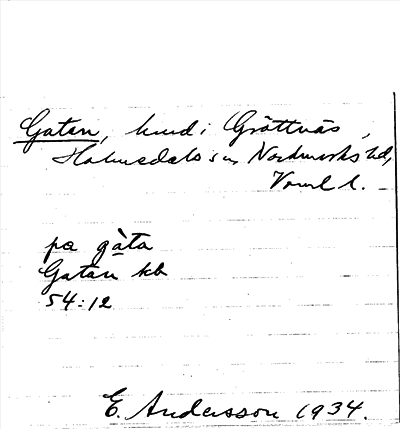 Gatan, hmd i Gröttnäs,
Holmedals sn, Nordmarks hd,
Vrml l.
pa gàta
Gatan kb
54:12
E. Andersson 1934.